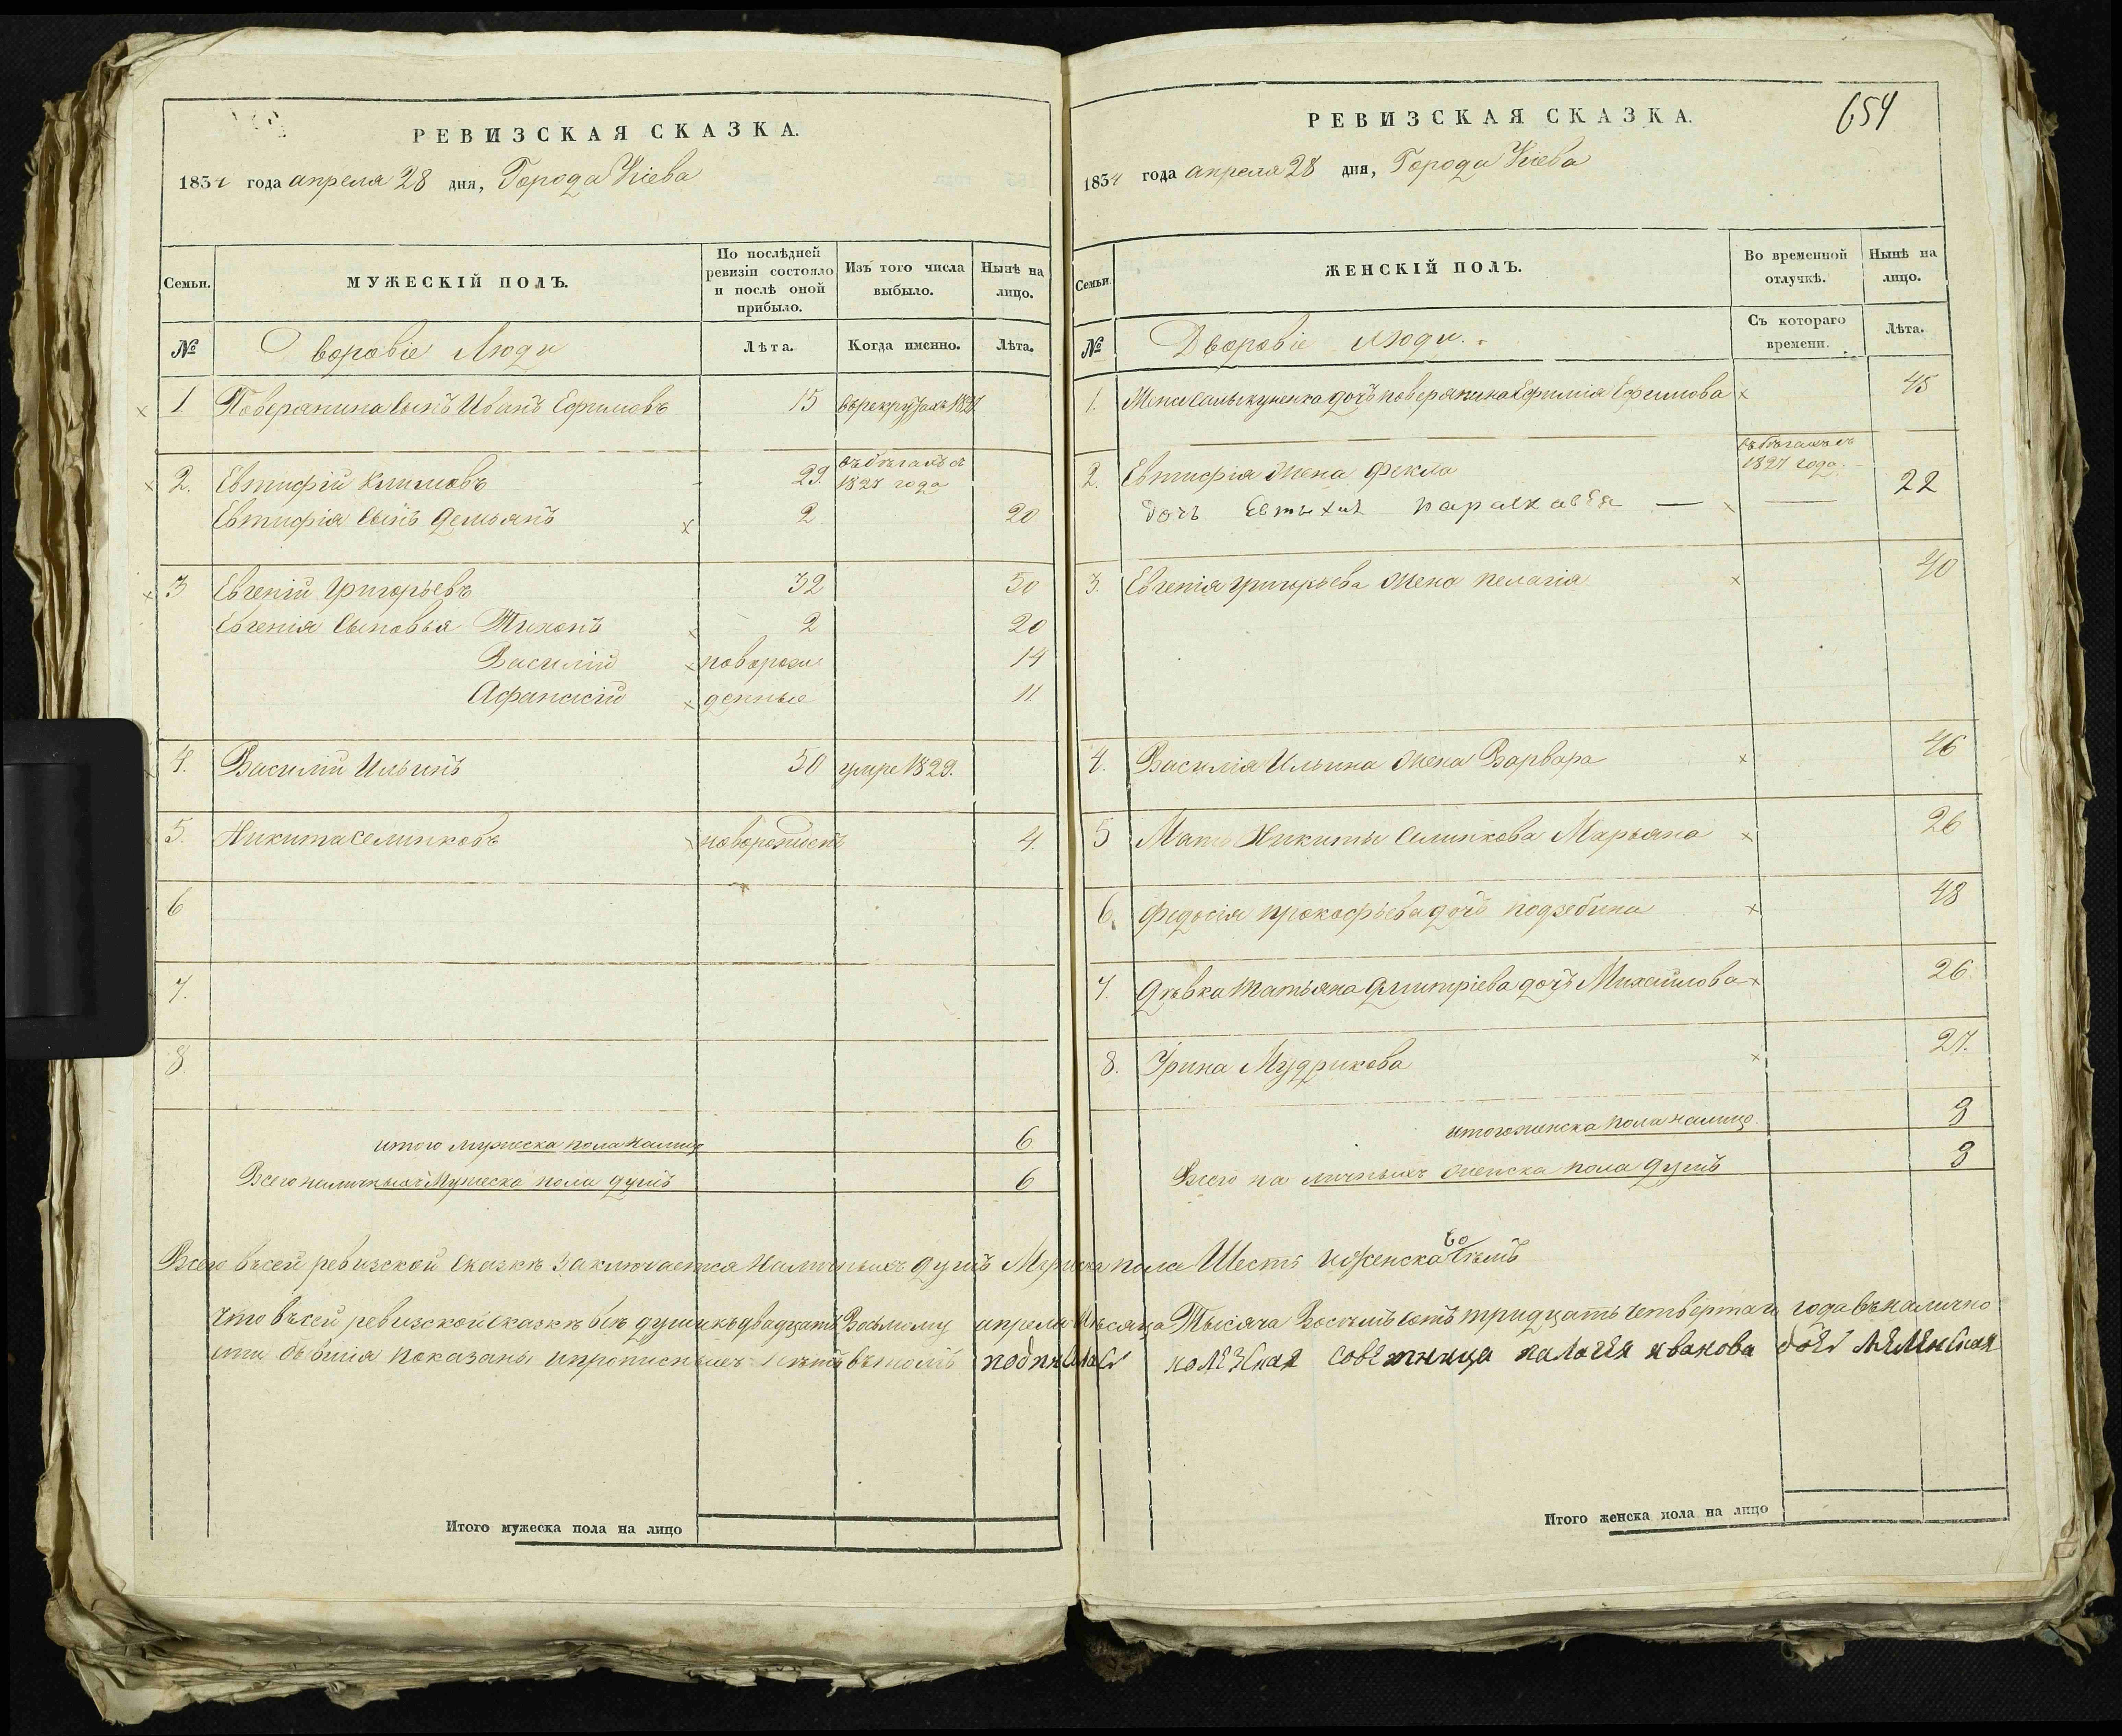 РЕВИЗСКАЯ СКАЗКА.
1834 года апреля 28 дня, Города Кіева
Семьи.
МУЖЕСКІЙ ПОЛЪ.
По послѣдней ревизіи состояло и послѣ оной прибыло.
Изъ того числа выбыло.
Нынѣ на лицо.
№
Дворовіе Люди
Лѣта.
Когда именно.
Лѣта.
1 Поверянина Сынъ Иванъ Ефимовъ 15 въ рекрутахъ 1827
2. Евтифій Климовъ 29. въ бѣгахъ съ 1827 года
Евтифія Сынъ Демьянъ 2 20
3 Евгеній Григорьевъ 32 50
Евгенія Сыновья Тихонъ 2 20
Василій новорож 14
Афанасій денные 11.
4. Василій Ильинъ 50 умре 1829.
5. Никита Селинковъ новорожденъ 4.
6
7.
8
итого мужеска пола налицо 6
Всего наличныхъ Мужеска пола душъ 6
Итого мужеска пола на лицо
РЕВИЗСКАЯ СКАЗКА.
654
1834 года апреля 28 дня, Города Кіева
Семьи.
ЖЕНСКІЙ ПОЛЪ.
Во временной отлучкѣ.
Нынѣ на лицо.
№
Дворовіе люди.
Съ котораго времени.
Лѣта.
1. дочь поверянина Ефимія Ефимова 45
2. Евтифія Жена Фекла въ бѣгахъ съ 1827 года
дочь Евтыхия параскавея 22
3. Евгенія григорьева жена пелагія 40
4. Василія Ильина жена Варвара 46
5 Мать Никиты Селинкова Марьяна 26
6. Федосія прокофьева дочь 48
7. Дѣвка татьяна Дмитріева дочь Михайлова 26
8. Ирина Мудрикова 27.
итого женска пола налицо. 8
Всего на личныхъ женска пола душъ 8
Всего въ сей ревизской Сказкѣ Заключается наличныхъ душъ Мужеска пола Шесть и женска во семъ
Что въ сей ревизской сказкѣ всѣ души къ двадцать Восьмому апреля Мѣсяца Тысяча Восемъ сотъ тридцать четвертаго года въ налично
сти бывшія показаны и прописныхъ нѣтъ въ томъ подписалас колѣзкая совѣтница палагѣя иванова
Итого женска пола на лицо